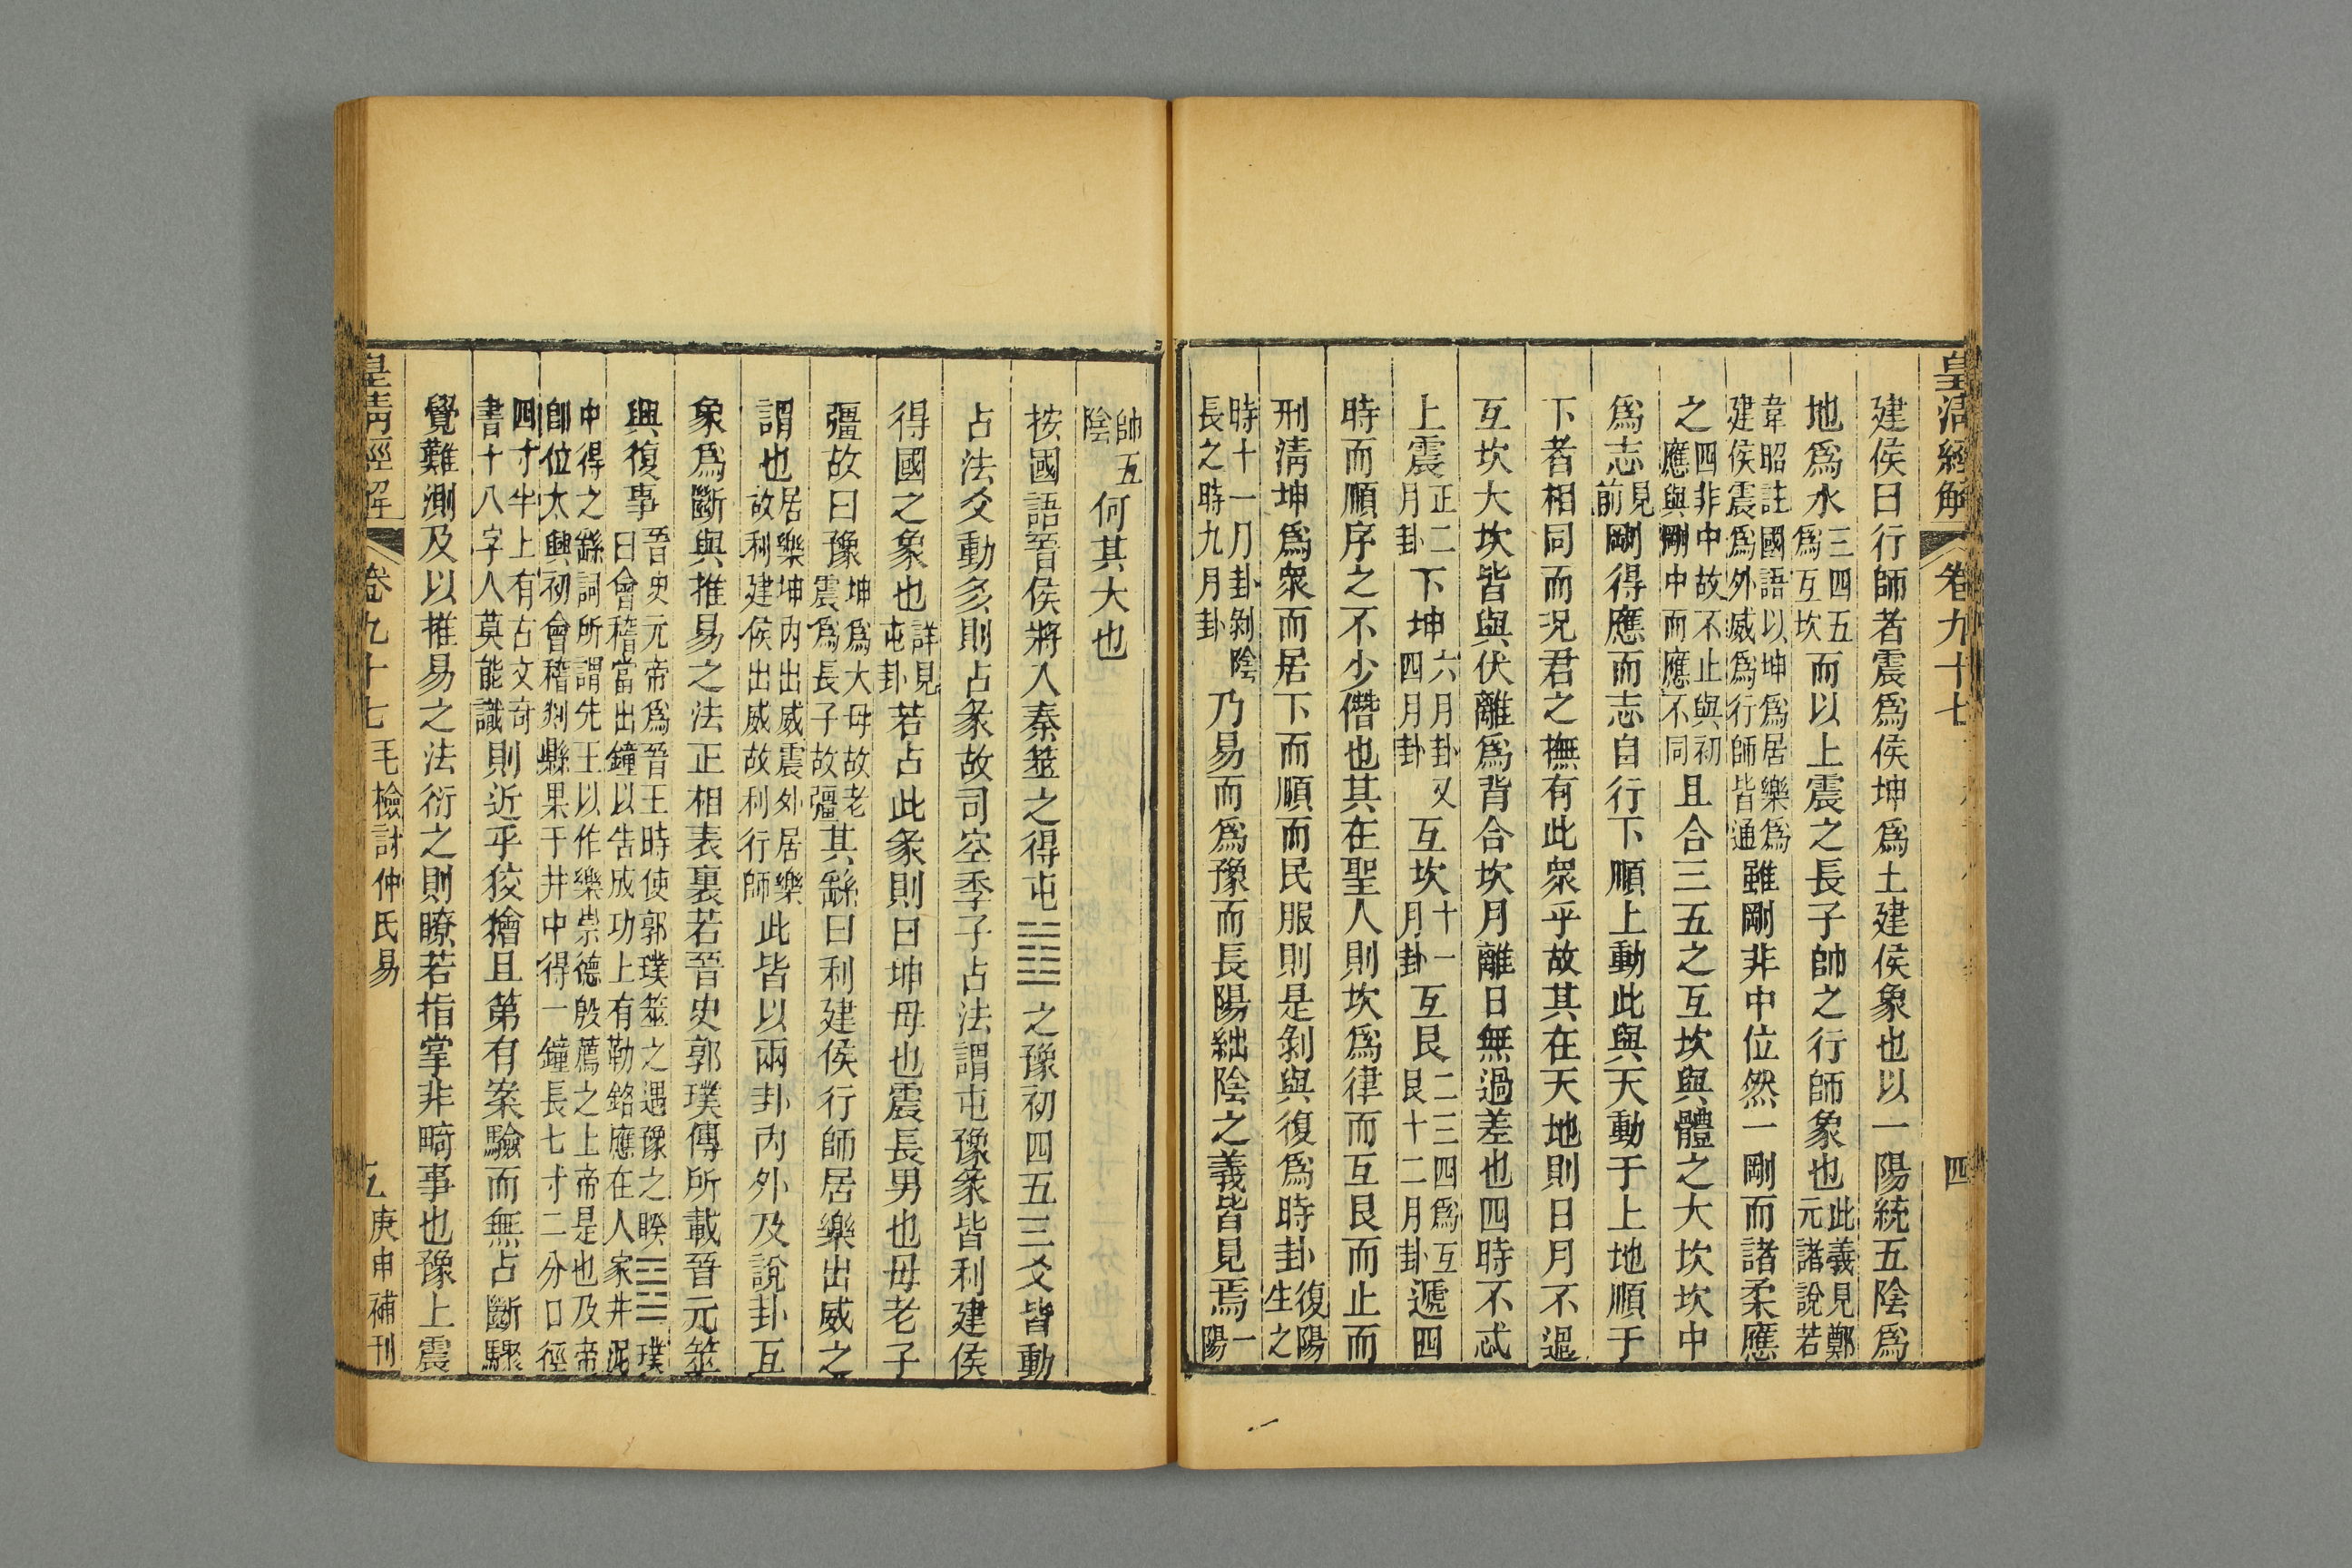 皇清經解 卷九十七 四
建侯曰行師者震爲侯坤爲土建侯象也以一陽統五陰爲
地爲水三四五爲互坎而以上震之長子帥之行師象也此義見鄭元諸說若
韋昭註國語以坤爲居樂爲建侯震爲外威爲行師皆通雖剛非中位然一剛而諸柔應
之四非中故不止與初應與剛中而應不同且合三五之互坎與體之大坎坎中
爲志見前剛得應而志自行下順上動此與天動于上地順于
下者相同而況君之撫有此衆乎故其在天地則日月不過
互坎大坎皆與伏離爲背合坎月離日無過差也四時不忒
上震正二月卦下坤六月卦又四月卦互坎十一月卦互艮二三四爲互艮十二月卦遞四
時而順序之不少僭也其在聖人則坎爲律而互艮而止而
刑淸坤爲衆而居下而順而民服則是剝與復爲時卦復陽生之
時十一月卦剝陰長之時九月卦乃易而爲豫而長陽絀陰之義皆見焉一陽
帥五陰何其大也
按國語晉侯將入秦筮之得屯䷂之豫初四五三爻皆動
占法爻動多則占彖故司空季子占法謂屯豫彖皆利建侯
得國之象也詳見屯卦若占此彖則曰坤母也震長男也母老子
彊故曰豫坤爲大母故老震爲長子故彊其繇曰利建侯行師居樂出威之
謂也居樂坤内出威震外居樂故利建侯出威故利行師此皆以兩卦内外及說卦互
象爲斷與推易之法正相表裏若晉史郭璞傳所載晉元筮
興復事晉史元帝爲晉王時使郭璞筮之遇豫之睽䷥璞曰會稽當出鐘以告成功上有勒銘應在人家井泥
中得之繇詞所謂先王以作樂崇德殷薦之上帝是也及帝卽位太興初會稽剡縣果于井中得一鐘長七寸二分口徑
四寸半上有古文奇書十八字人莫能識則近乎狡獪且第有案驗而無占斷驟
覺難測及以推易之法衍之則瞭若指掌非畸事也豫上震
皇清經解 卷九十七 毛檢討仲氏易 五 庚申補刊